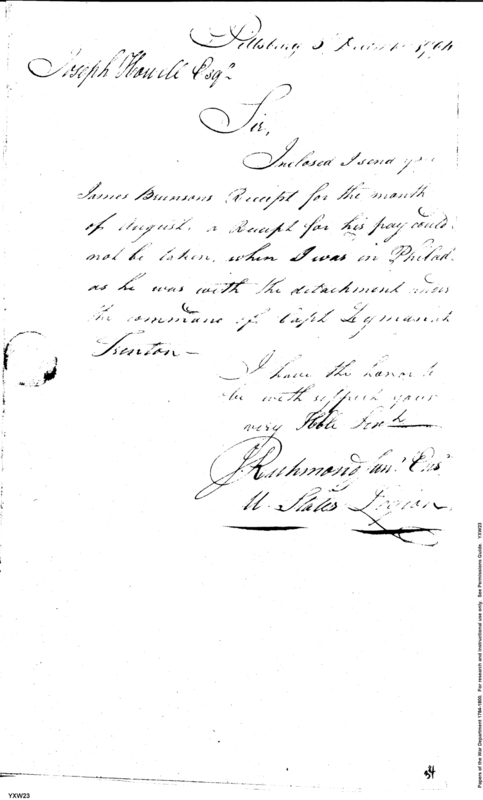 Pittsburg 5
Joseph Howell Esqr
Sir,
Inclosed I send you
James Brunsons Receipt for the month
of August. a Receipt for his pay could
not be taken, when I was in Philad.
as he was with the detachment under
the command of Capt Lyman at
Trenton —
I have the honor to
be with respect your
very Hble Servt
J Richmond Junr Ens
U States Legion
34
YXW23
Papers of the War Department 1784-1800. For research and instructional use only. See Permissions Guide. YXW23